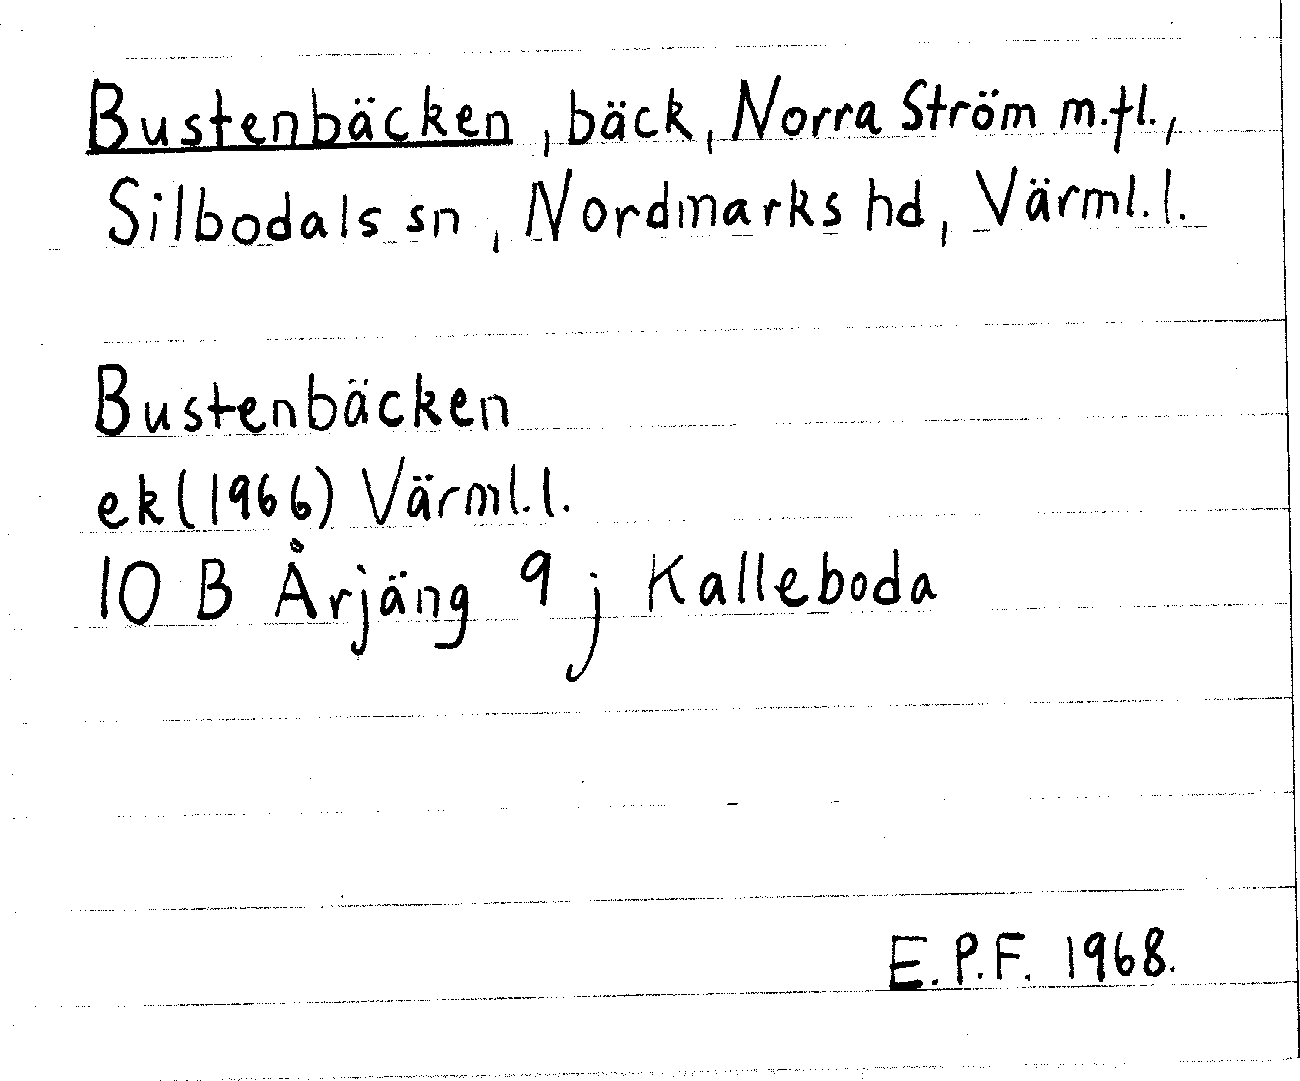 Bustenbäcken, bäck, Norra Ström m.fl.,
Silbodals sn, Nordmarks hd, Värml.l.
Bustenbäcken
ek(1966) Värml.l.
10 B Årjäng 9 j Kalleboda
E.P.F. 1968.